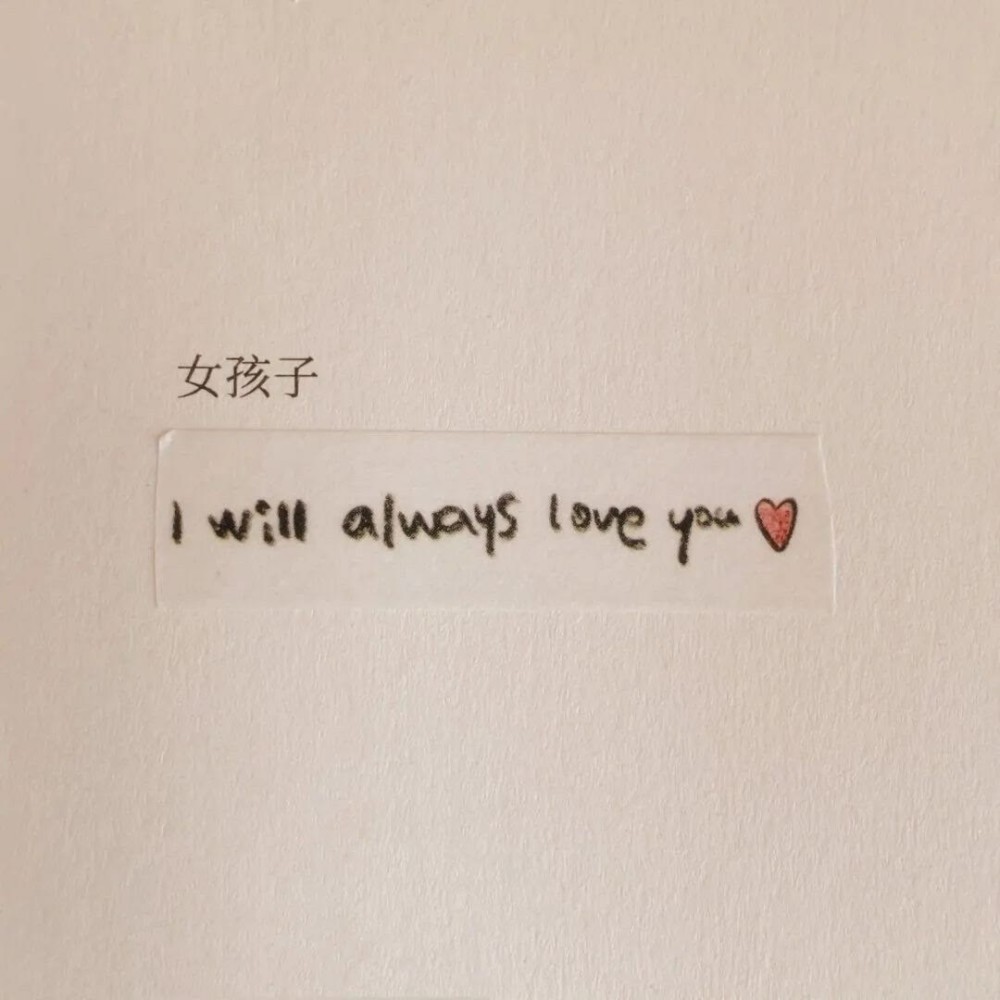 女孩子
I will always love you